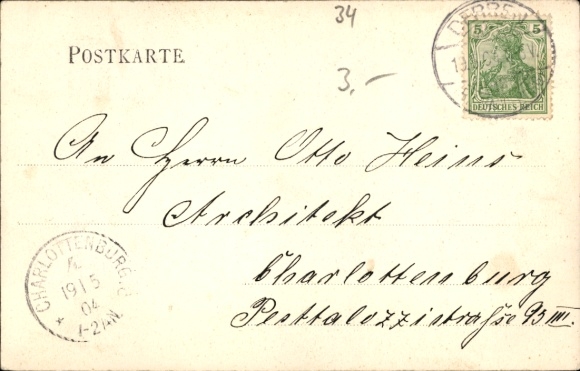 34
POSTKARTE
3,-
5 5
DEUTSCHES REICH
An Herrn Otto Heins
Architekt
Charlottenburg
Pesttalozzistraße 95 III.
CHARLOTTENBURG
19 1 5
04
1-2 N.